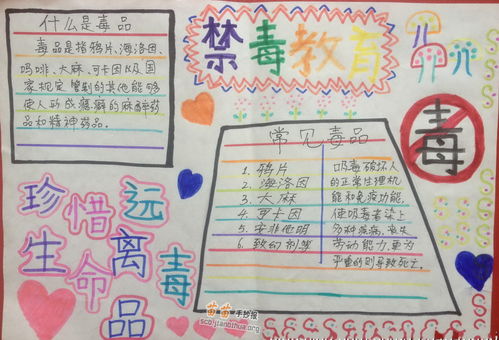 什么是毒品
毒品是指鸦片、海洛因、
吗啡、大麻、可卡因以及国
家规定管制的其他能够
使人形成瘾癖的麻醉药
品和精神药品。
禁毒教育
毒
常见毒品
1. 鸦片
2. 海洛因
3. 大麻
4. 可卡因
5. 安非他明
6. 致幻剂类
吸毒破坏人
的正常生理机
能和免疫功能,
使吸毒者染上
多种疾病,丧失
劳动能力,更为
严重的则导致死亡。
珍惜
生命
远离
毒品
苗苗手抄报
scb.jianbihua.org